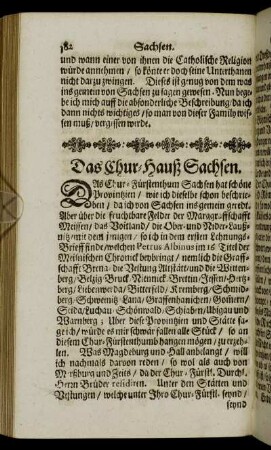 382 Sachsen.
und wann einer von ihnen die Catholische Religion
würde annehmen / so könte er doch seine Unterthanen
nicht darzu zwingen. Dieses ist genug von dem was
ins gemein von Sachsen zu sagen gewesen. Nun bege-
be ich mich auff die absonderliche Beschreibung / da ich
dann nichts wichtiges / so man von dieser Family wis-
sen muß / vergessen werde.
Das Chur-Hauß Sachsen.
DAs Chur-Fürstenthum Sachsen hat schöne
Provintzien / wie ich dieselbe schon beschrie-
ben / da ich von Sachsen ins gemein geredt.
Aber über die fruchtbare Felder der Marggraffschafft
Meissen / das Voitland / die Ober- und Nider-Lauß-
nitz / mit dem jenigen / so ich in dem ersten Lehnungs-
Brieff finde / welchen Petrus Albinus im 16. Titel der
Meißnischen Chronick beybringt / nemlich die Graff-
schafft: Brena / die Vestung Altstätt / und die Witten-
berg / Belzig
Liebenwerda / Bitterfeld / Kremberg / Schmide-
berg / Schweinitz
Seida / Luchau / Schönwald / Schiaben / Ubigau und
Warnberg; Über diese Provintzien und Stätte sa-
ge ich / würde es mir schwär fallen alle Stück / so an
diesem Chur-Fürstenthumb hangen mögen / zu erzeh-
len. Was Magdeburg und Hall anbelangt / will
ich nachmals darvon reden / so wol als auch von
Merßburg und Zeits / da der Chur-Fürstl. Durchl.
Herrn Brüder residiren. Unter den Stätten und
Vestungen / welche unter Ihro Chur-Fürstl. seynd /
seynd